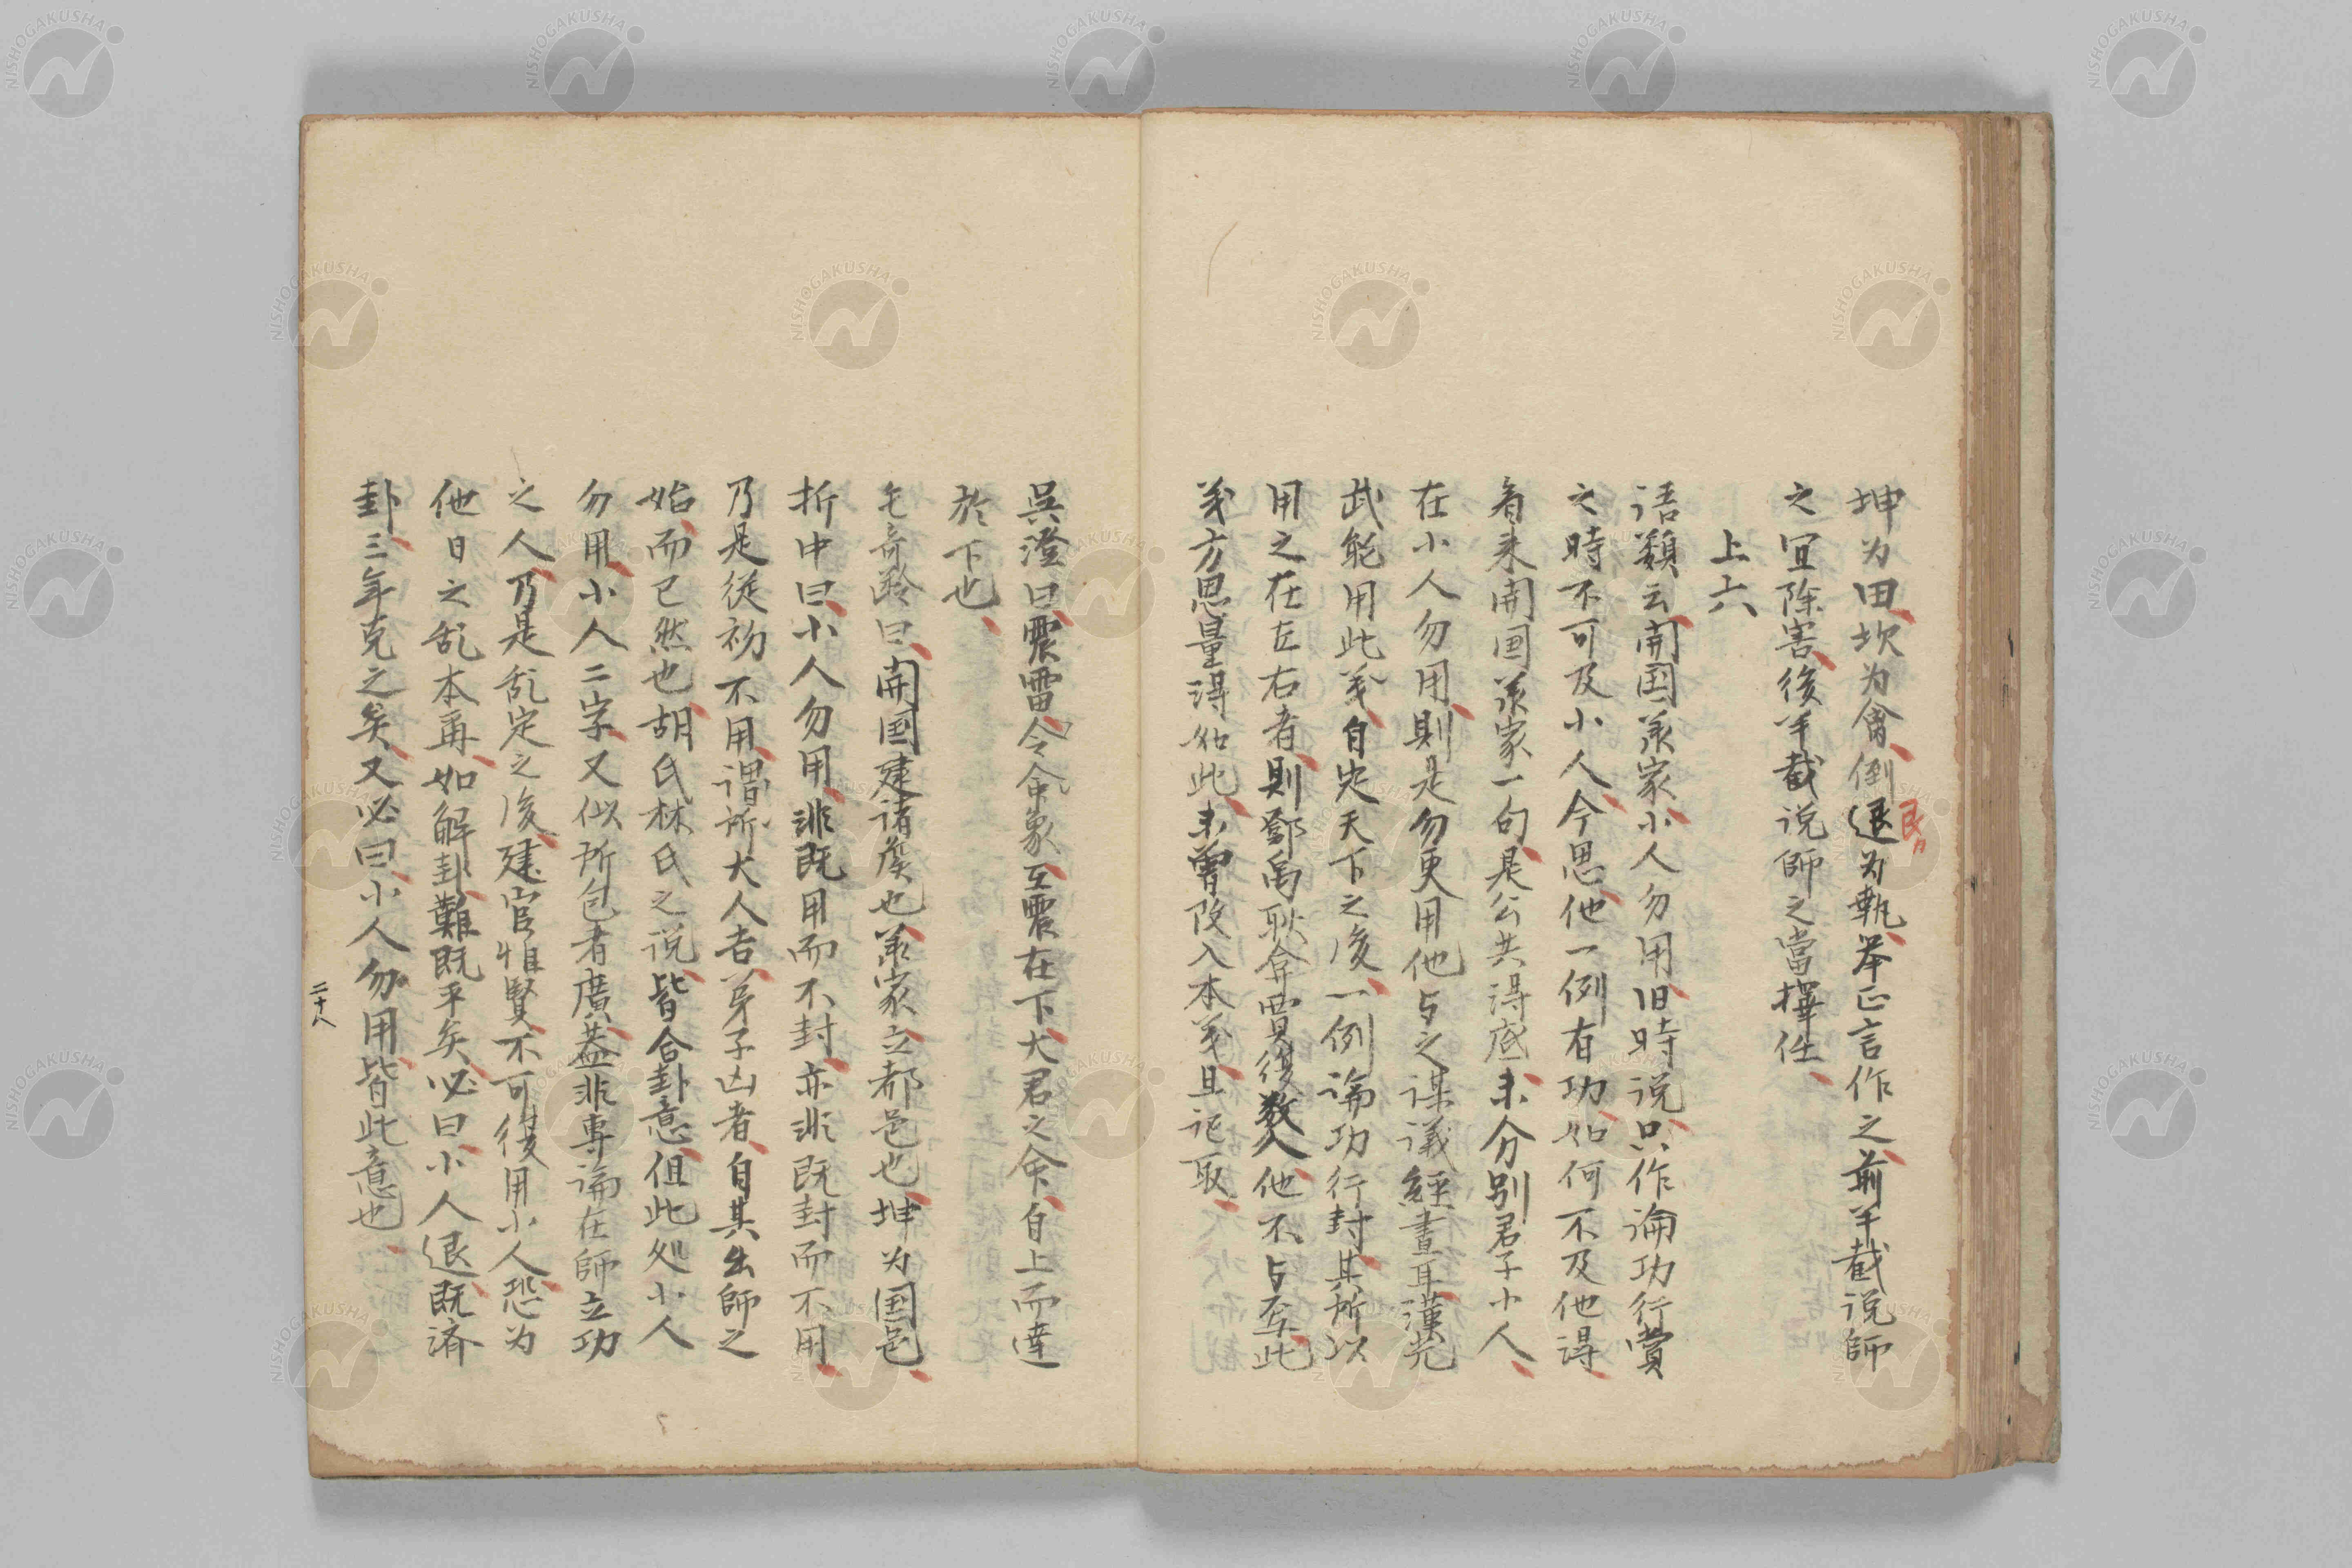 坤为田、坎为禽、倒退为執、挙正言作之、前半截说師
艮カ
之宜除害、後半截说師之當擇任、
上六
语類云、開国承家、小人勿用、旧時说、只作論功行賞
之時不可及小人、今思他一例有功、如何不及他得、
看来開国承家一句、是公共得底、未分别君子小人、
在小人勿用、則是勿更用他与之谋議經畫耳、漢光
武能用此義、自定天下之後、一例論功行封、其所以
用之在左右者、則鄧禹耿弇賈復数人、他不与焉、此
義方思量得如此、未曾改入本義、且记取、
吳澄曰、震雷、令命象、互震在下、大君之命、自上而達
於下也、
毛奇齢曰、開国建诸侯也、承家立都邑也、坤为国邑、
折中曰、小人勿用、非既用而不封、亦非既封而不用、
乃是従初不用、谓所大人吉、弟子凶者、自其出師之
始、而已然也、胡氏林氏之说、皆合卦意、但此处小人
勿用、小人二字、又似所包者廣、葢非専論在師立功
之人、乃是乱定之後、建官惟賢、不可復用小人、恐为
他日之乱本再、如解卦、難既平矣、必曰、小人退、既済
卦、三年克之矣、又必曰、小人勿用、皆此意也、
二十八